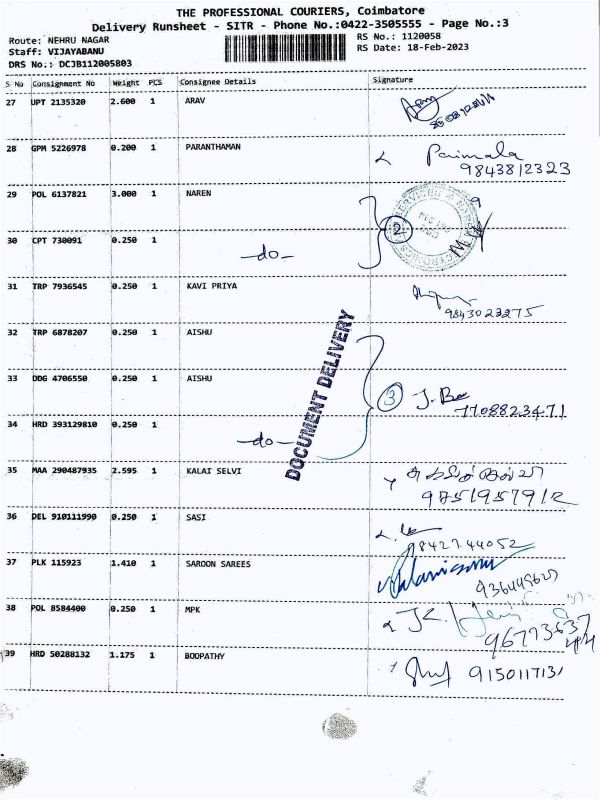 THE PROFESSIONAL COURIERS, Coimbatore
Delivery Runsheet - SITR - Phone No.:0422-3505555 - Page No.:3
Route: NEHRU NAGAR RS No.: 1120058
Staff: VIJAYABANU RS Date: 18-Feb-2023
DRS No.: DCJB112005803
S No Consignment No Weight PCS Consignee Details Signature
27 UPT 2135320 2.600 1 ARAV
28 GPM 5226978 0.200 1 PARANTHAMAN Parimala
9843812323
29 POL 6137821 3.000 1 NAREN
2
30 CPT 730091 0.250 1 -do-
31 TRP 7936545 0.250 1 KAVI PRIYA
9843023275
32 TRP 6878207 0.250 1 AISHU
DOCUMENT DELIVERY
33 DDG 4706550 0.250 1 AISHU
3 J. Be
7708823471
34 HRD 393129810 0.250 1 -do-
35 MAA 290487935 2.595 1 KALAI SELVI
9751957912
36 DEL 910111990 0.250 1 SASI
9842744052
37 PLK 115923 1.410 1 SAROON SAREES
38 POL 8584400 0.250 1 MPK
39 HRD 50288132 1.175 1 BOOPATHY
9150117131